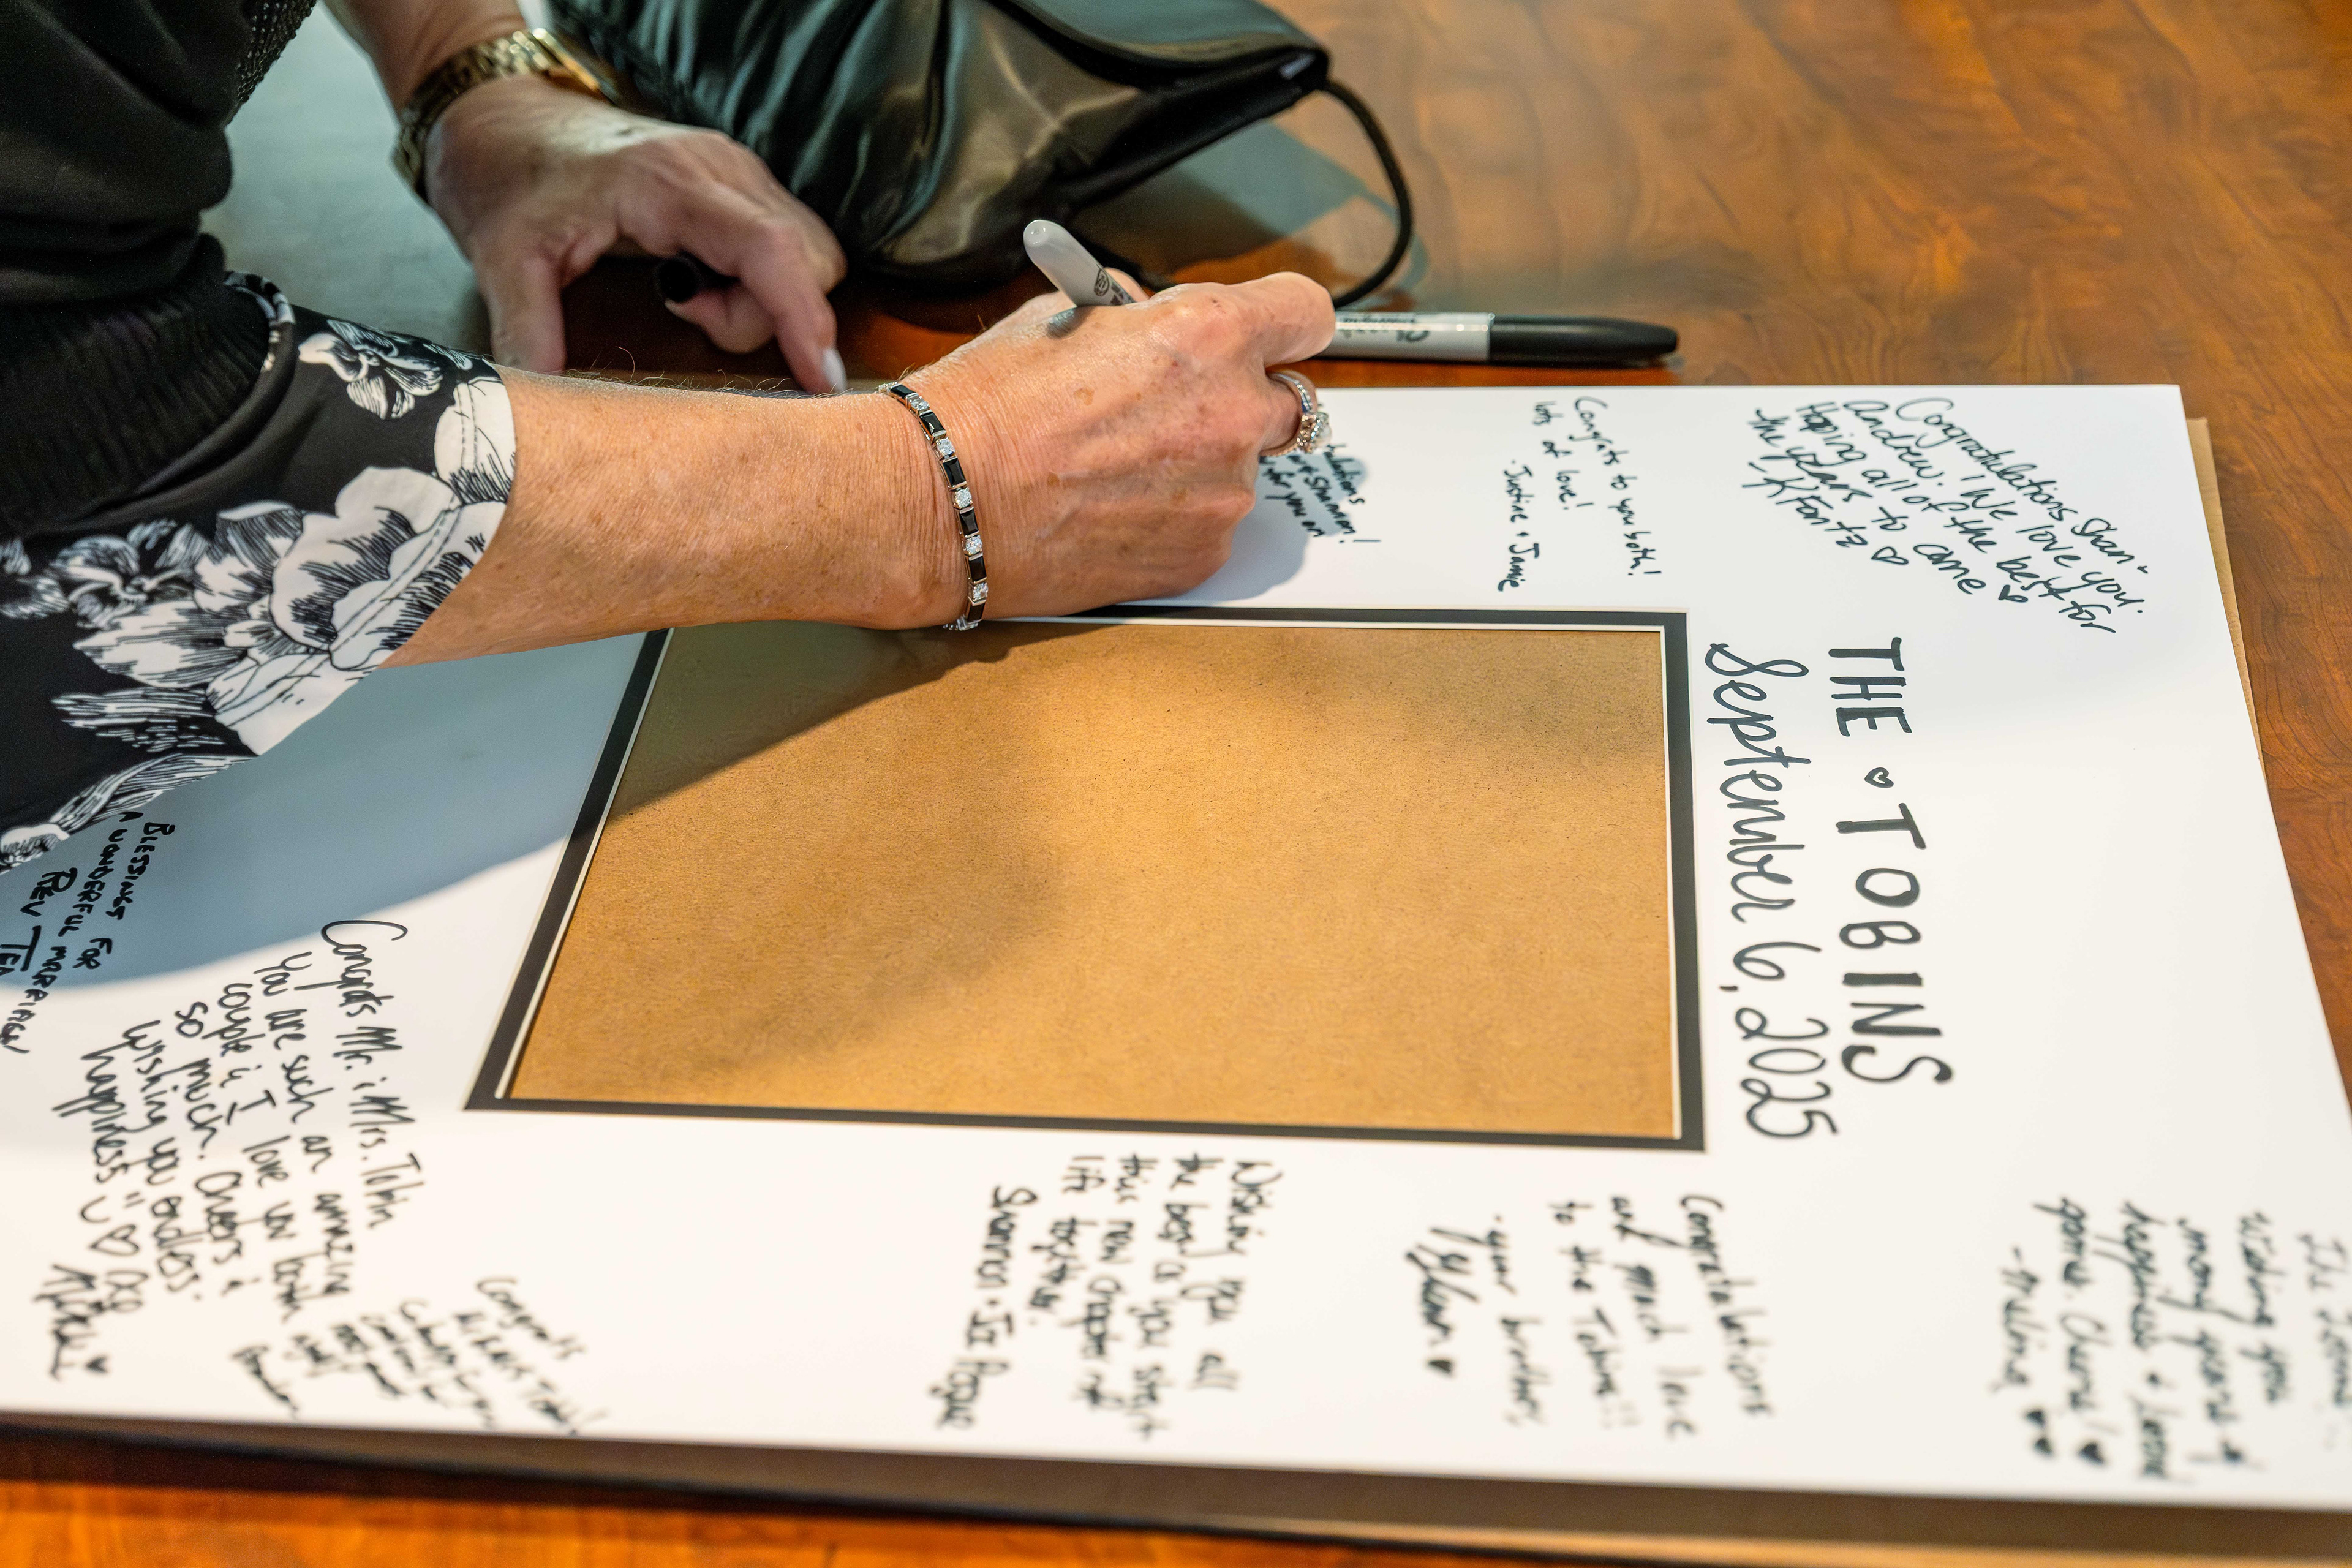 THE ♥ TOBINS
September 6, 2025
Congratulations Shan
Andrew! We love you.
Hoping all of the best for
the years to come ♥
- K Fontz ♡
Congrats to you both!
lots of love!
- Justine + Jamie
Shannon!
for you
BLESSINGS FOR
A WONDERFUL MARRIAGE
REV
Congrats Mr. & Mrs. Tobin
You are such an amazing
couple & I love you both
so much. Cheers &
wishing you endless
happiness
Congrats
Wishing you all
the best as you start
this new chapter of
life together.
Shannon
Congratulations
and much love
to the Tobins!!
- your brother,
Wishing you
many years of
happiness + love
Cheers!